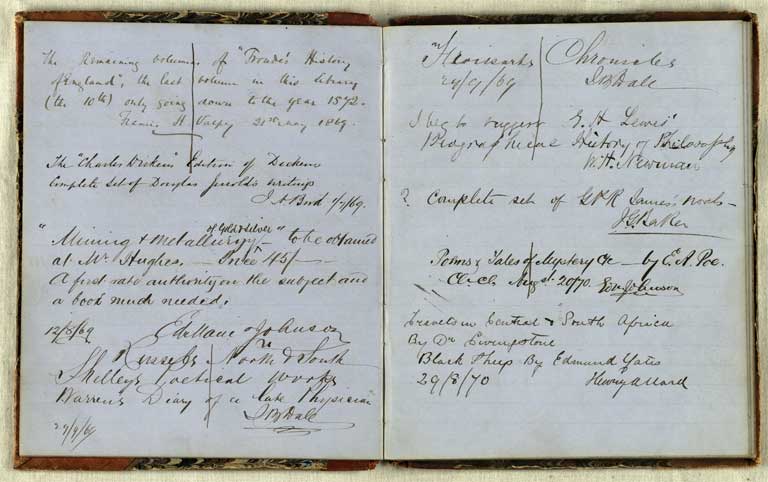 The Remaining volumes of "Froude's History
of England", the last volume in this library
(the 10th) only going down to the year 1572.
Francis H Valpy 21st May 1869.
The "Charles Dickens" Edition of Dickens
Complete Set of Douglas Jerrold's writings
J A Bord /69.
of Gold & Silver
"Mining & Metallurgy" — to be obtained
at Mr Hughes. — Price 45/—
A first rate authority on the subject and
a book much needed.
12/8/69 Johnson
North & South
Shelley's Poetical Works
Warren's Diary of a late Physician
J B Dale
29/9/69
Froissarts Chronicles
29/9/69 J B Dale
I beg to suggest G. H. Lewes'
Biographical History of Philosophy
W. H. Newman
? Complete set of G P R James's novels —
J G Baker
Poems & Tales of Mystery &c — by E. A. Poe.
Augst 20/70. Johnson
Travels in Central & South Africa
By Dr Livingstone
Black Sheep By Edmund Yates
29/8/70 Henry Allard